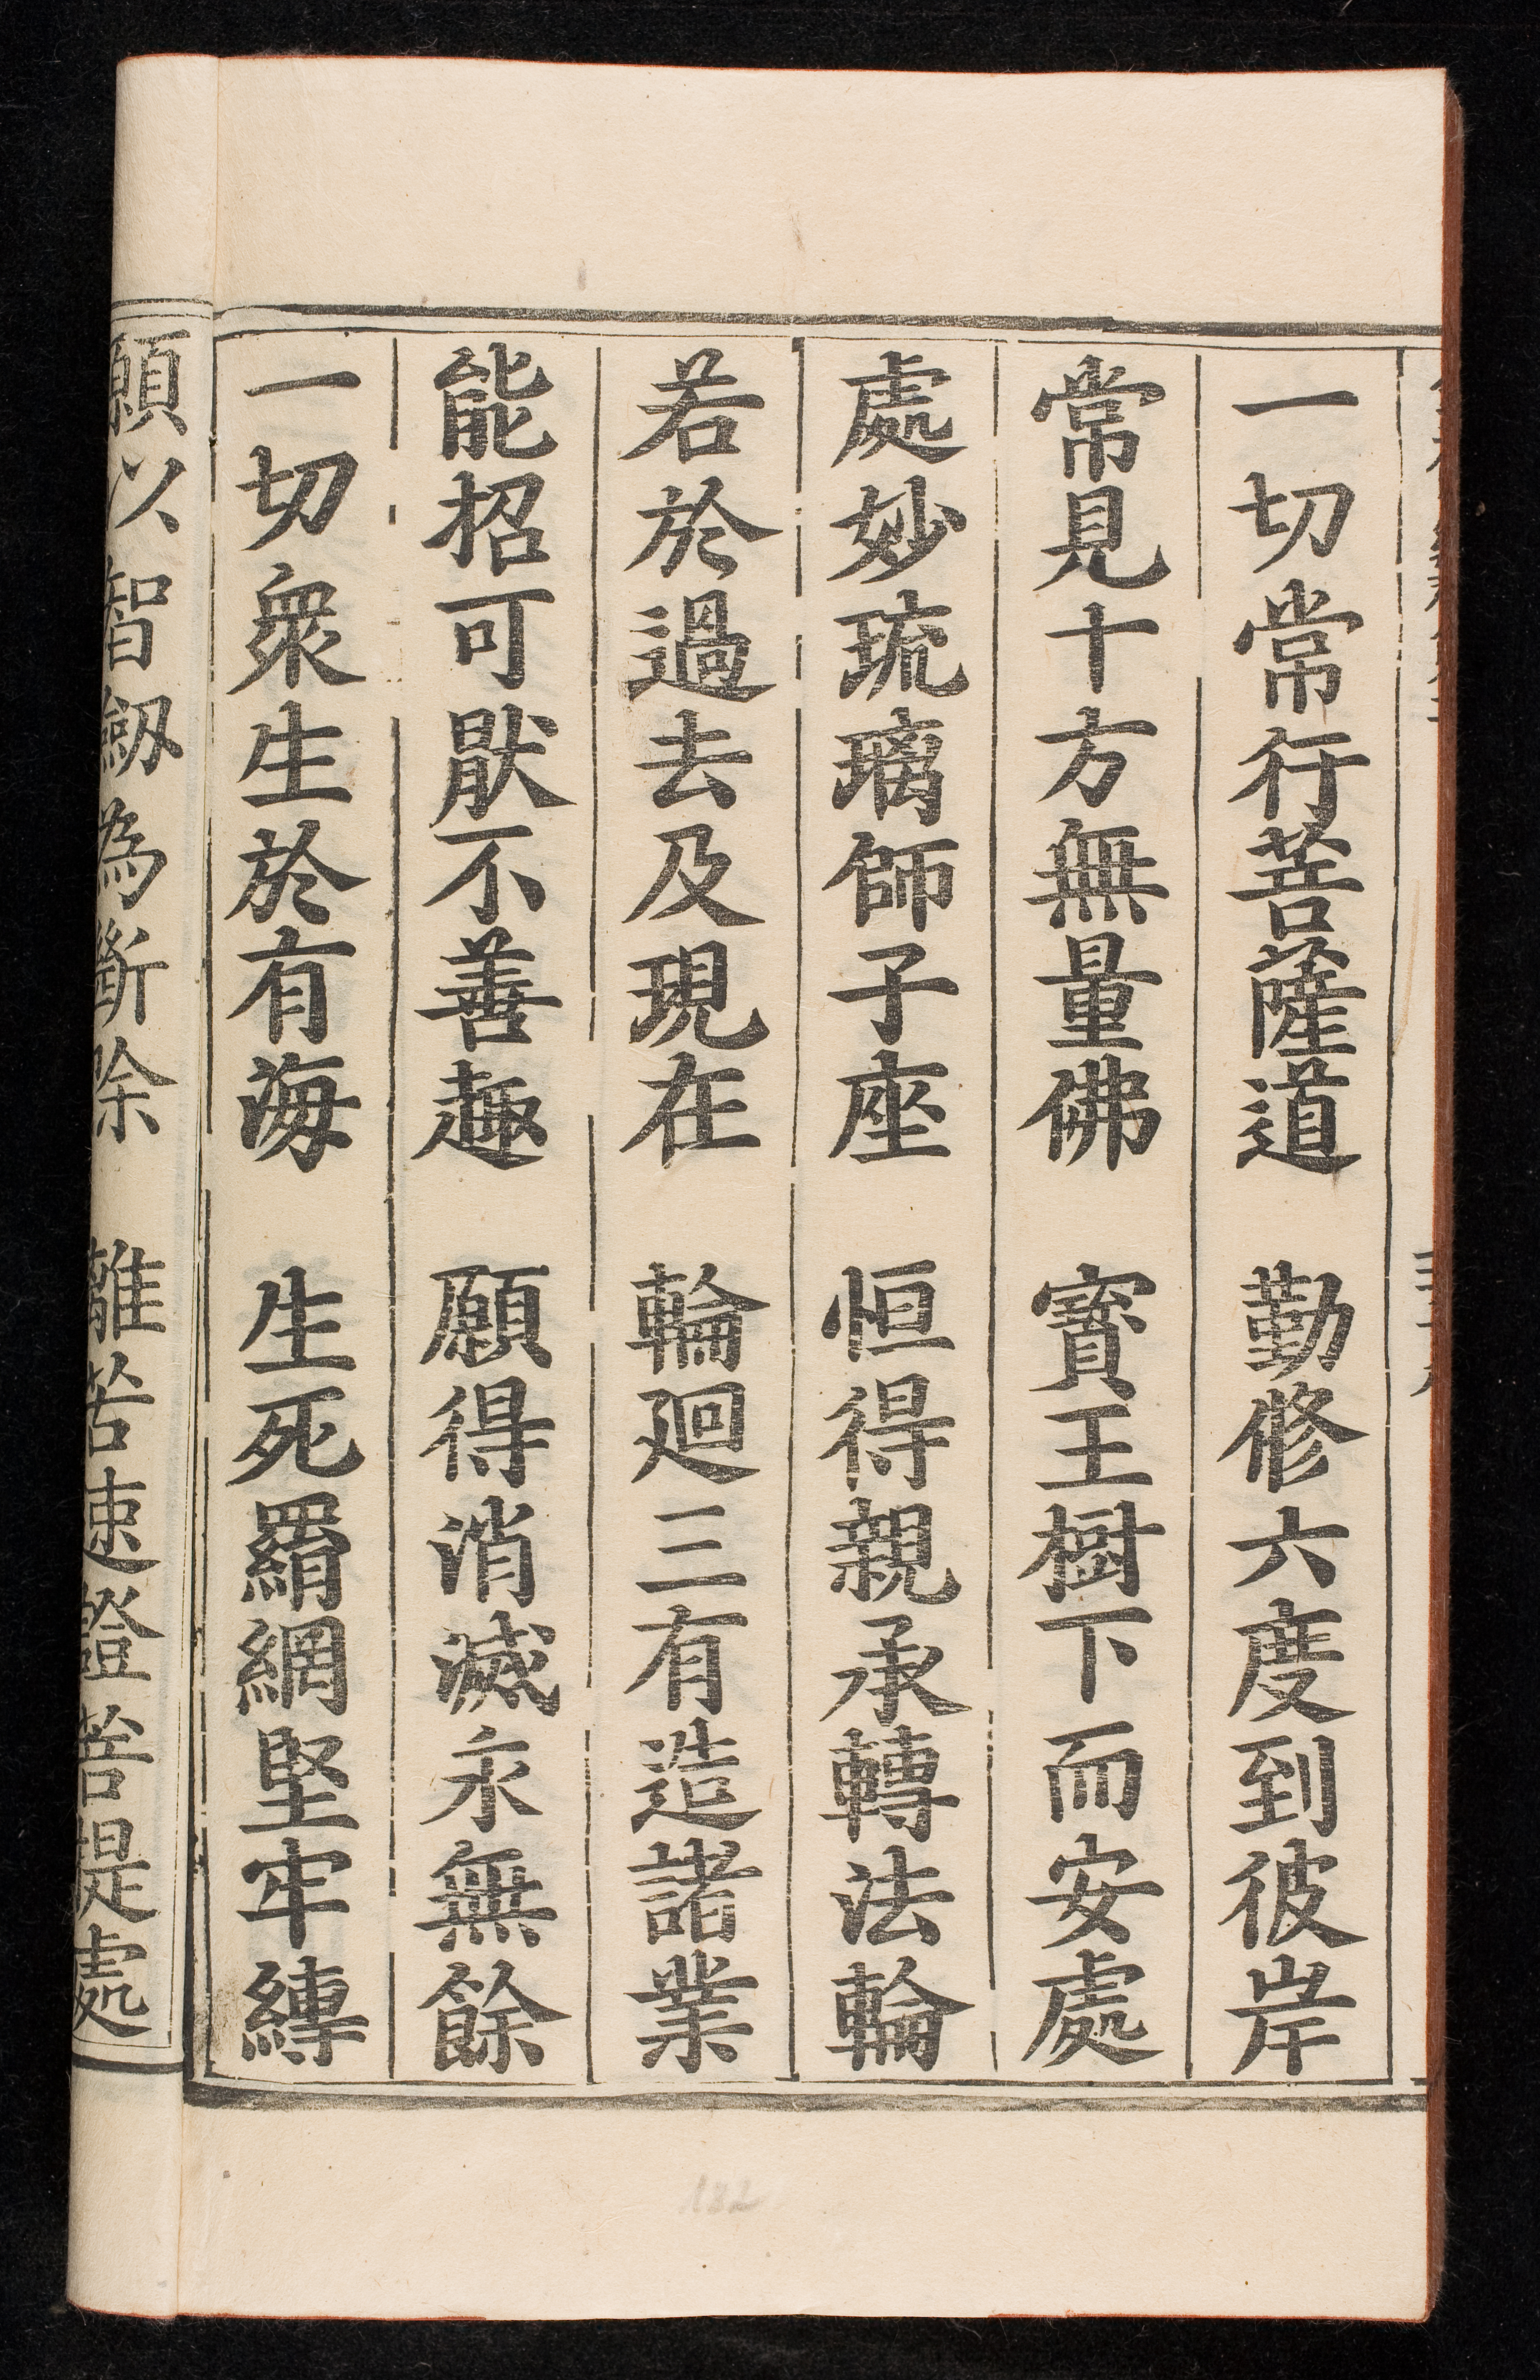 一切常行菩薩道　勤修六度到彼岸
常見十方無量佛　寶王樹下而安處
處妙琉璃師子座　恒得親承轉法輪
若於過去及現在　輪廻三有造諸業
能招可厭不善趣　願得消滅永無餘
一切衆生於有海　生死羂網堅牢縛
願以智劔為斷除　離苦速證菩提處